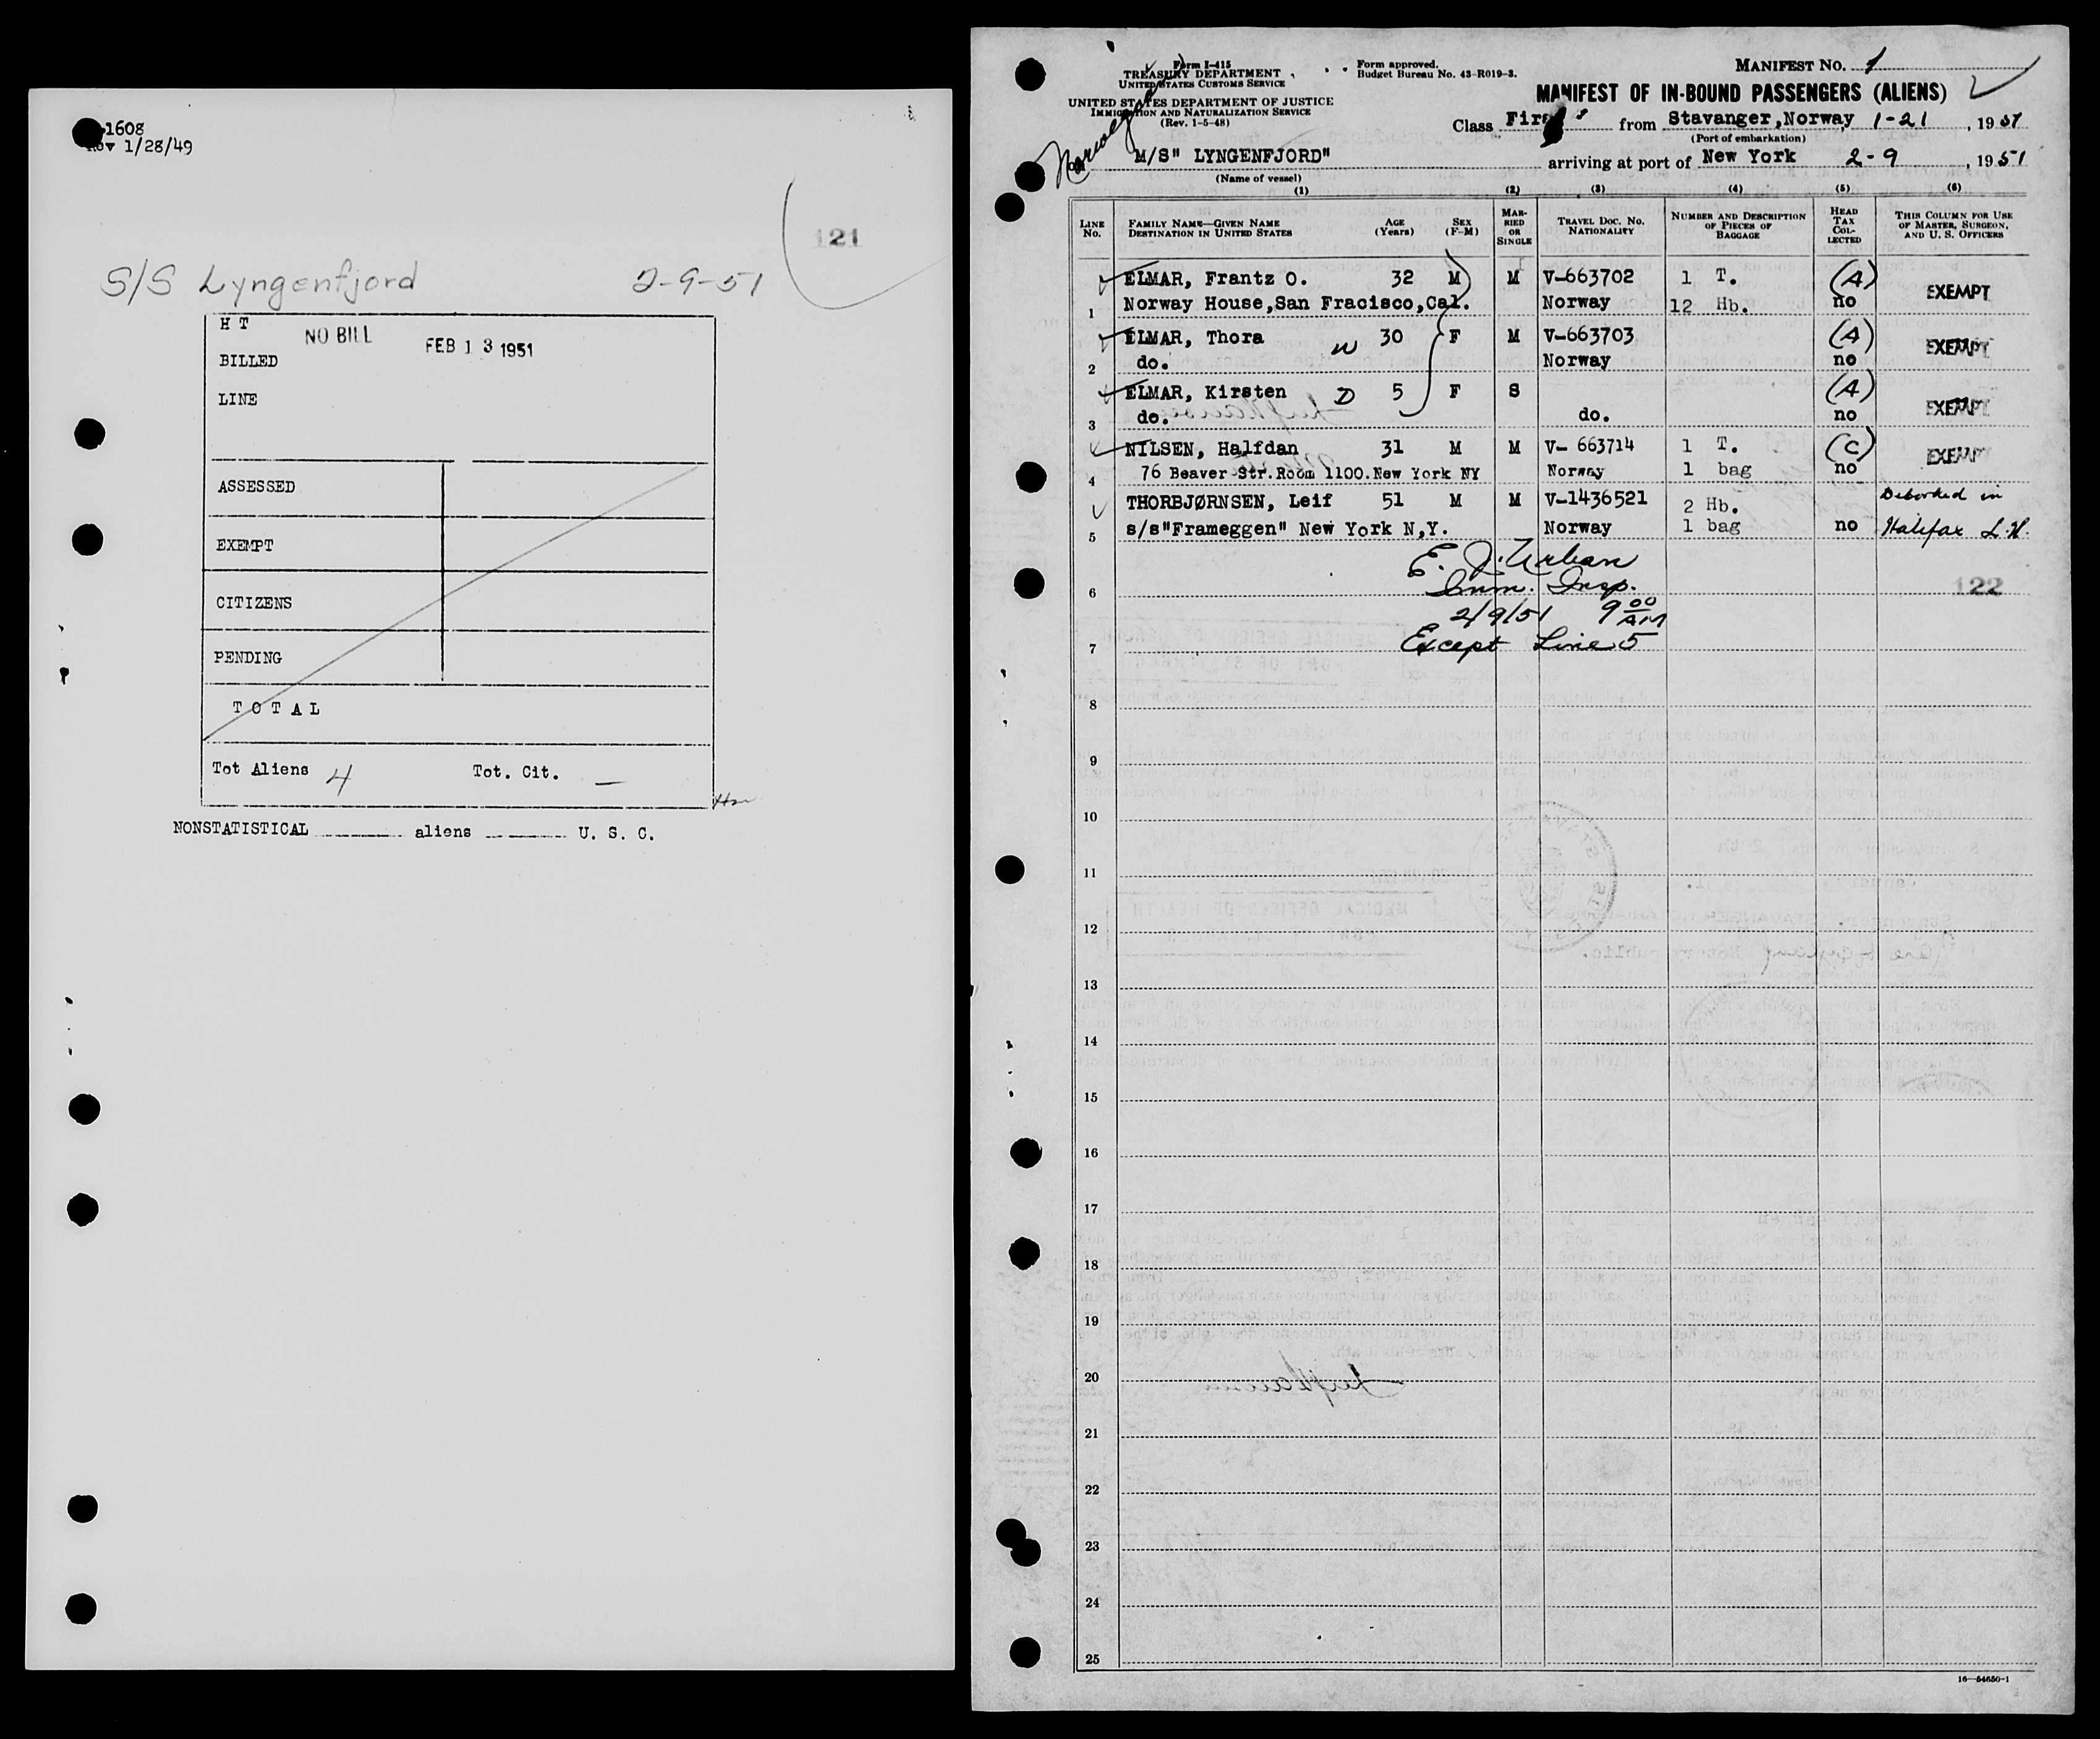 1608
Rev 1/28/49
121
S/S Lyngenfjord 2-9-51
H T NO BILL FEB 13 1951
BILLED
LINE
ASSESSED
EXEMPT
CITIZENS
PENDING
T O T A L
Tot Aliens 4 Tot. Cit. —
NONSTATISTICAL ________ aliens ________ U. S. C.
Form I-415
TREASURY DEPARTMENT
UNITED STATES CUSTOMS SERVICE
UNITED STATES DEPARTMENT OF JUSTICE
IMMIGRATION AND NATURALIZATION SERVICE
(Rev. 1-5-48)
Form approved.
Budget Bureau No. 43-R019-3.
MANIFEST NO. 1
MANIFEST OF IN-BOUND PASSENGERS (ALIENS)
Class First from Stavanger,Norway 1-21, 1951
(Port of embarkation)
Norwegian
M/S" LYNGENFJORD" arriving at port of New York 2-9, 1951
(Name of vessel)
(1) (2) (3) (4) (5) (6)
LINE No. FAMILY NAME—GIVEN NAME DESTINATION IN UNITED STATES AGE (Years) SEX (F-M) MARRIED OR SINGLE TRAVEL DOC. NO. NATIONALITY NUMBER AND DESCRIPTION OF PIECES OF BAGGAGE HEAD TAX COLLECTED THIS COLUMN FOR USE OF MASTER, SURGEON, AND U. S. OFFICERS
ELMAR, Frantz O. 32 M M V-663702 1 T. (A) EXEMPT
1 Norway House,San Fracisco,Cal. Norway 12 Hb. no
ELMAR, Thora W 30 F M V-663703 (A) EXEMPT
2 do. Norway no
ELMAR, Kirsten D 5 F S (A) EXEMPT
3 do. do. no
NILSEN, Halfdan 31 M M V- 663714 1 T. (C) EXEMPT
4 76 Beaver Str.Room 1100.New York NY Norway 1 bag no
THORBJØRNSEN, Leif 51 M M V-1436521 2 Hb. Deborked in
5 s/s"Frameggen" New York N,Y. Norway 1 bag no Halifax L.H.
E. J. Urban
6 Imm. Insp. 122
2/9/51 9 00 AM
7 Except Line 5
8
9
10
11
12
13
14
15
16
17
18
19
20
21
22
23
24
25
16—54650-1